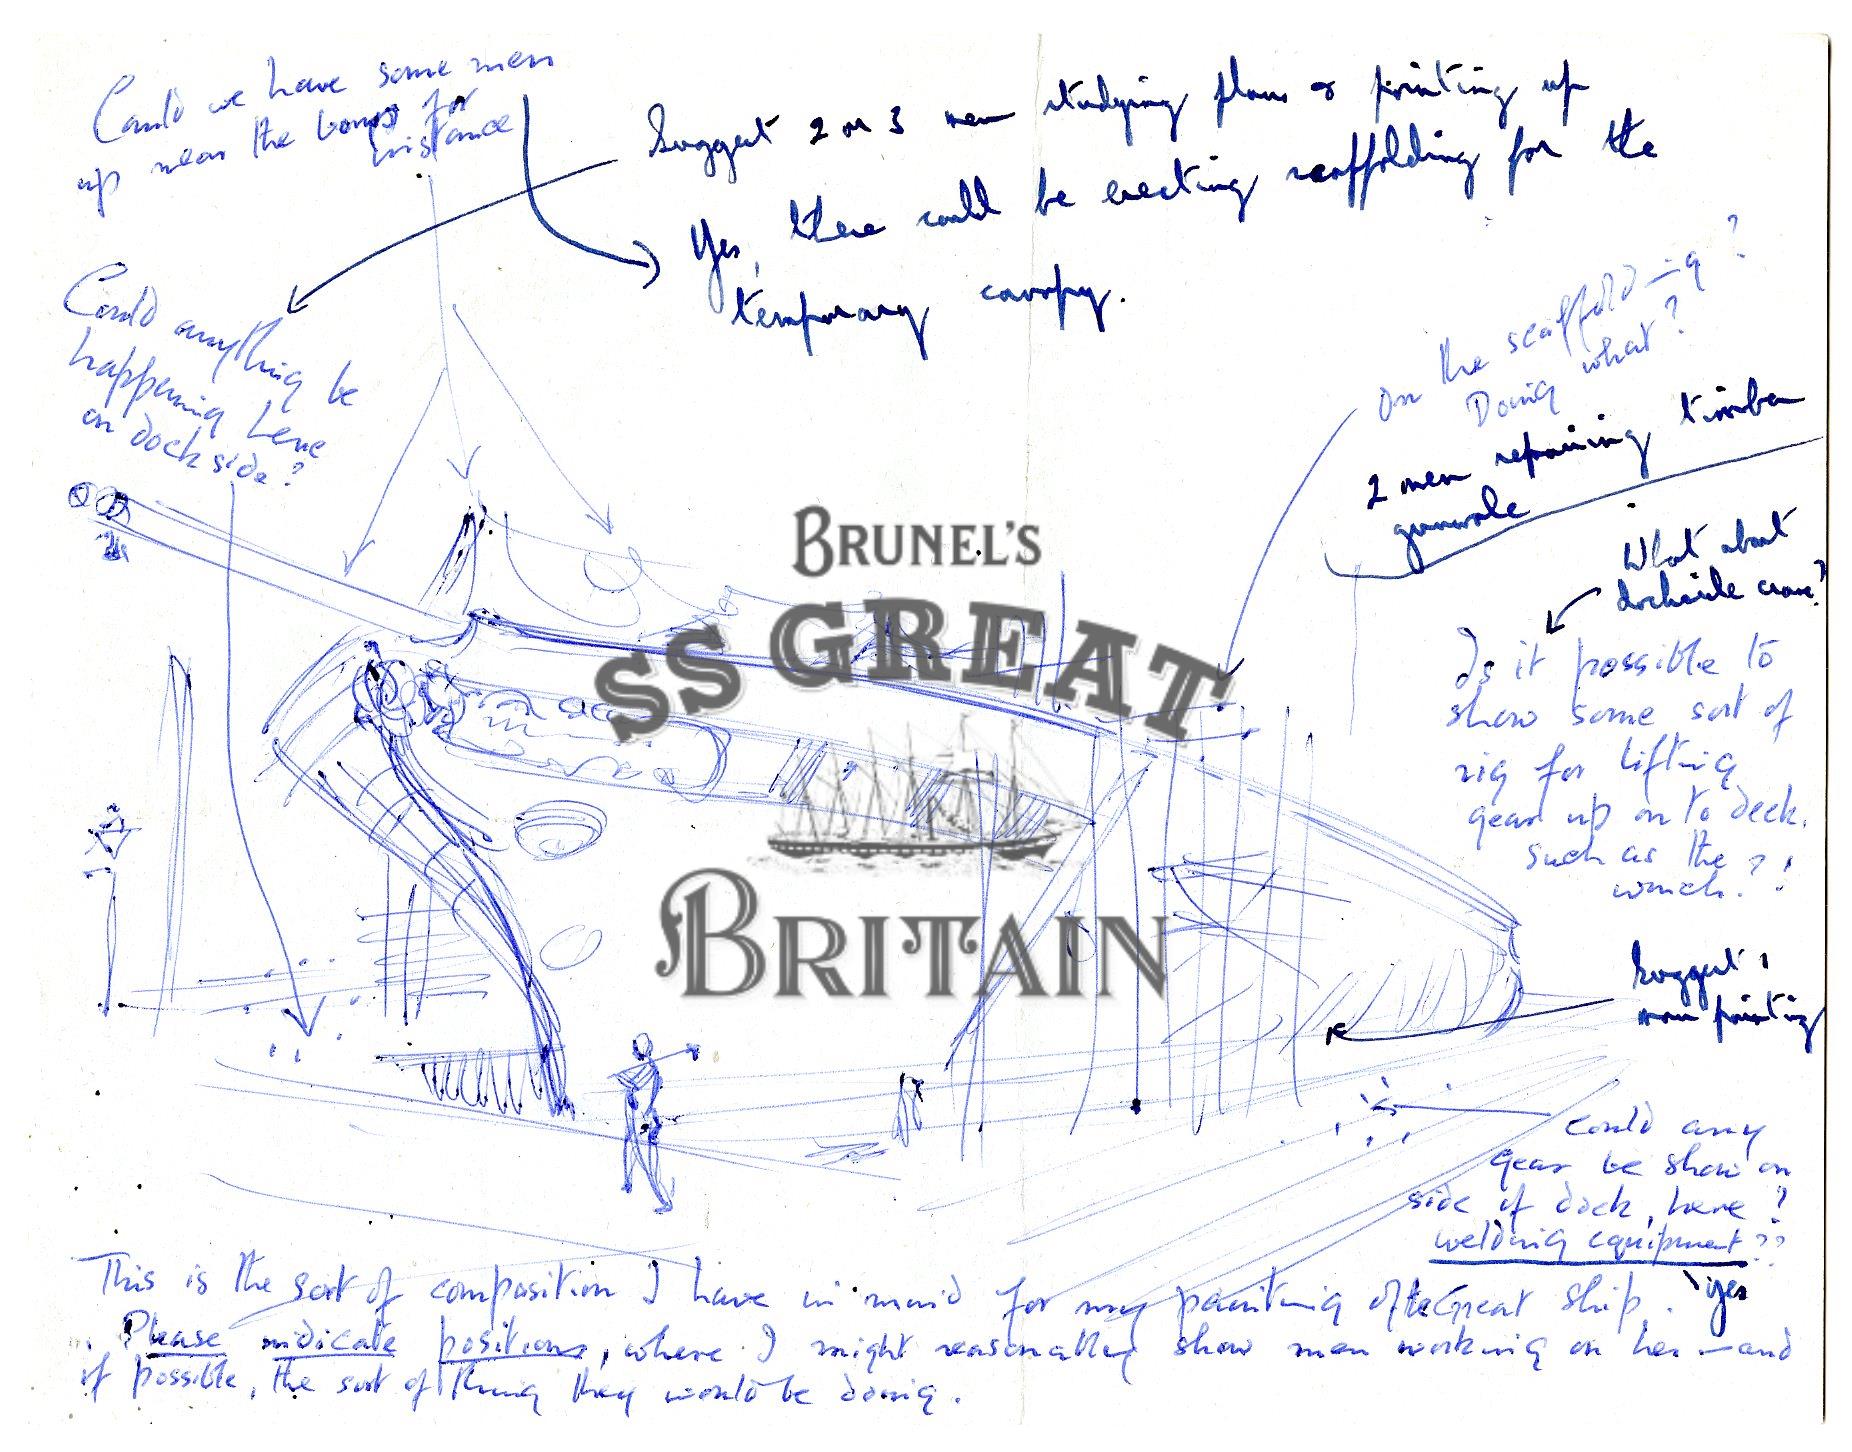 Could we have some men
up near the bows for
instance
Suggest 2 or 3 men studying plans & pointing up
Yes, there could be erecting scaffolding for the
temporary canopy.
Could anything be
happening here
on dock side?
On the scaffolding?
Doing what?
2 men repairing timber
gunwale
What about
dockside crane?
Is it possible to
show some sort of
rig for lifting
gear up on to deck.
such as the
winch??
BRUNEL'S
SS GREAT
BRITAIN
Suggest 1
man painting
Could any
gear be show on
side of dock, here?
welding equipment??
Yes
This is the sort of composition I have in mind for my painting of the Great Ship.
Please indicate positions, where I might reasonably show men working on her – and
if possible, the sort of thing they would be doing.